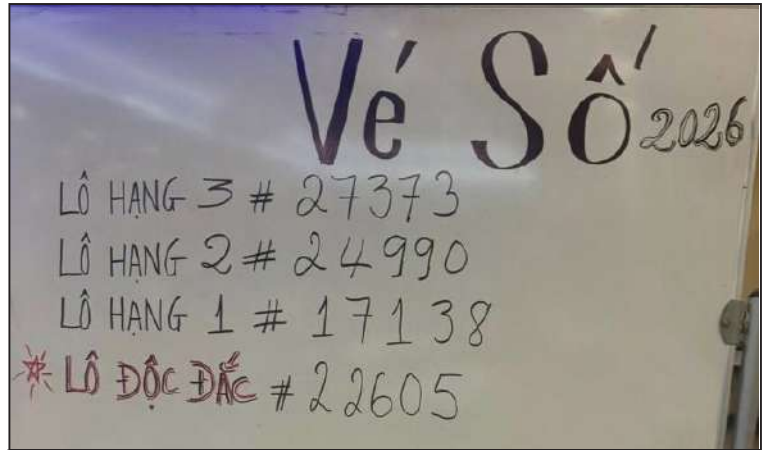 Vé Số 2026
LÔ HẠNG 3 # 27373
LÔ HẠNG 2 # 24990
LÔ HẠNG 1 # 17138
* LÔ ĐỘC ĐẮC # 22605